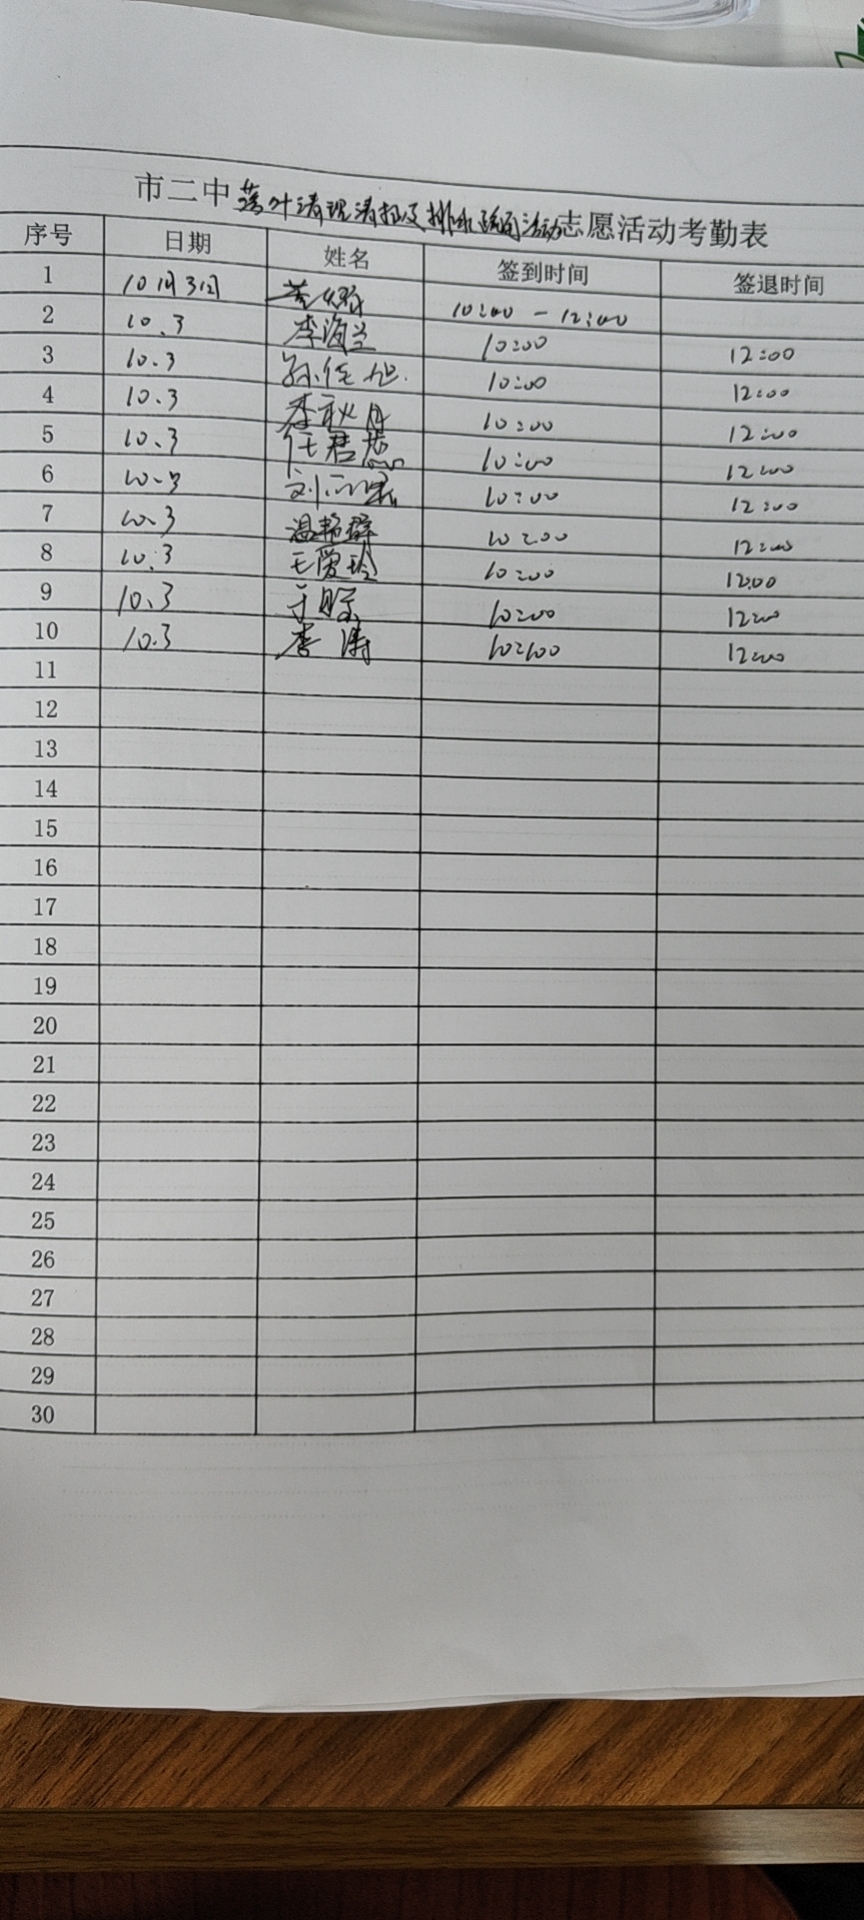 市二中落叶清理清扫及排水疏通活动志愿活动考勤表
序号 日期 姓名 签到时间 签退时间
1 10月3日 10:00 - 12:00
2 10.3 李海兰 10:00 12:00
3 10.3 孙任旭 10:00 12:00
4 10.3 李秋月 10:00 12:00
5 10.3 任君慧 10:00 12:00
6 10.3 刘 10:00 12:00
7 10.3 温艳群 10:00 12:00
8 10.3 王爱玲 10:00 12:00
9 10.3 于 10:00 12:00
10 10.3 李涛 10:00 12:00
11
12
13
14
15
16
17
18
19
20
21
22
23
24
25
26
27
28
29
30